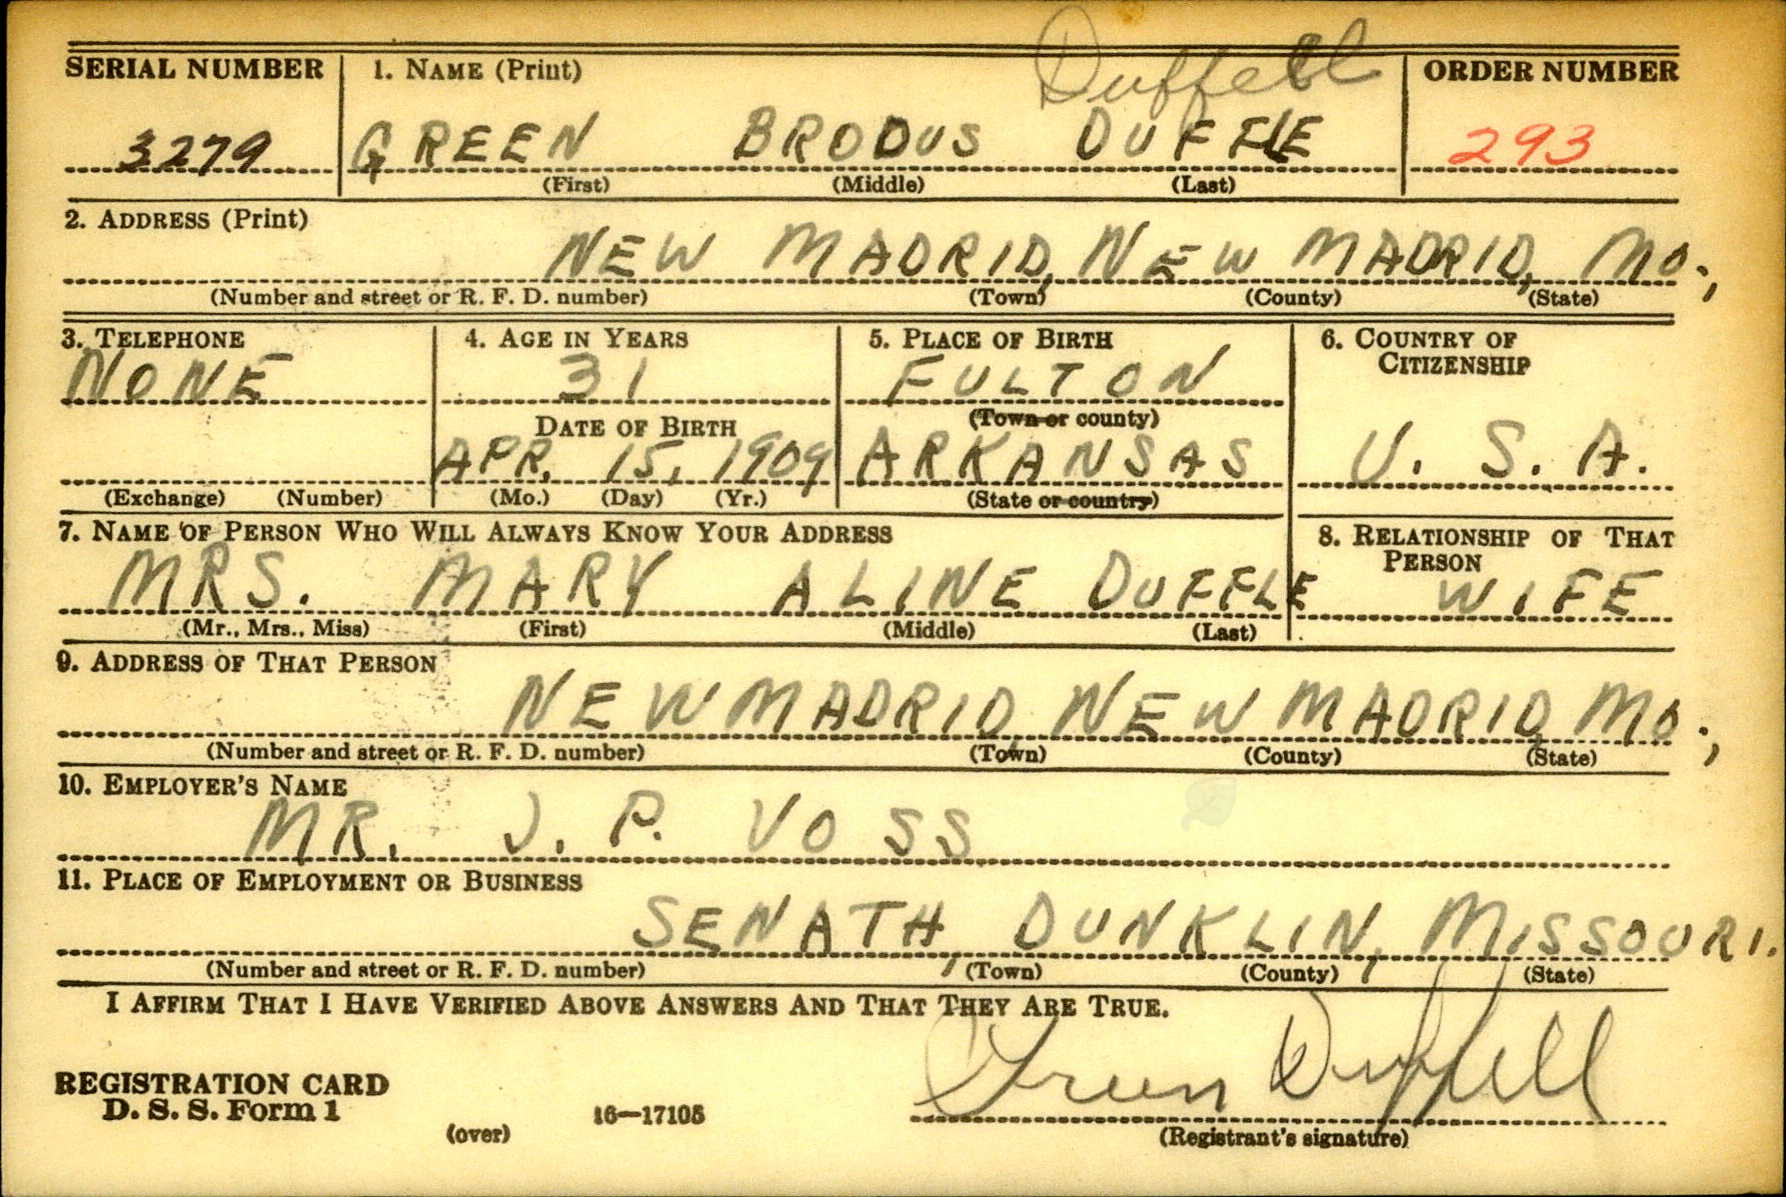 Duffell
SERIAL NUMBER 1. NAME (Print) ORDER NUMBER
3279 GREEN BRODUS DUFFLE 293
(First) (Middle) (Last)
2. ADDRESS (Print)
NEW MADRID, NEW MADRID, MO.,
(Number and street or R. F. D. number) (Town) (County) (State)
3. TELEPHONE 4. AGE IN YEARS 5. PLACE OF BIRTH 6. COUNTRY OF
CITIZENSHIP
NONE 31 FULTON
DATE OF BIRTH (Town or county)
APR. 15, 1909 ARKANSAS U. S. A.
(Exchange) (Number) (Mo.) (Day) (Yr.) (State or country)
7. NAME OF PERSON WHO WILL ALWAYS KNOW YOUR ADDRESS 8. RELATIONSHIP OF THAT
PERSON
MRS. MARY ALINE DUFFLE WIFE
(Mr., Mrs., Miss) (First) (Middle) (Last)
9. ADDRESS OF THAT PERSON
NEW MADRID, NEW MADRID, MO.,
(Number and street or R. F. D. number) (Town) (County) (State)
10. EMPLOYER'S NAME
MR. J. P. VOSS
11. PLACE OF EMPLOYMENT OR BUSINESS
SENATH, DUNKLIN, MISSOURI.
(Number and street or R. F. D. number) (Town) (County) (State)
I AFFIRM THAT I HAVE VERIFIED ABOVE ANSWERS AND THAT THEY ARE TRUE.
Green Duffell
REGISTRATION CARD
D. S. S. Form 1 16—17105
(over) (Registrant's signature)